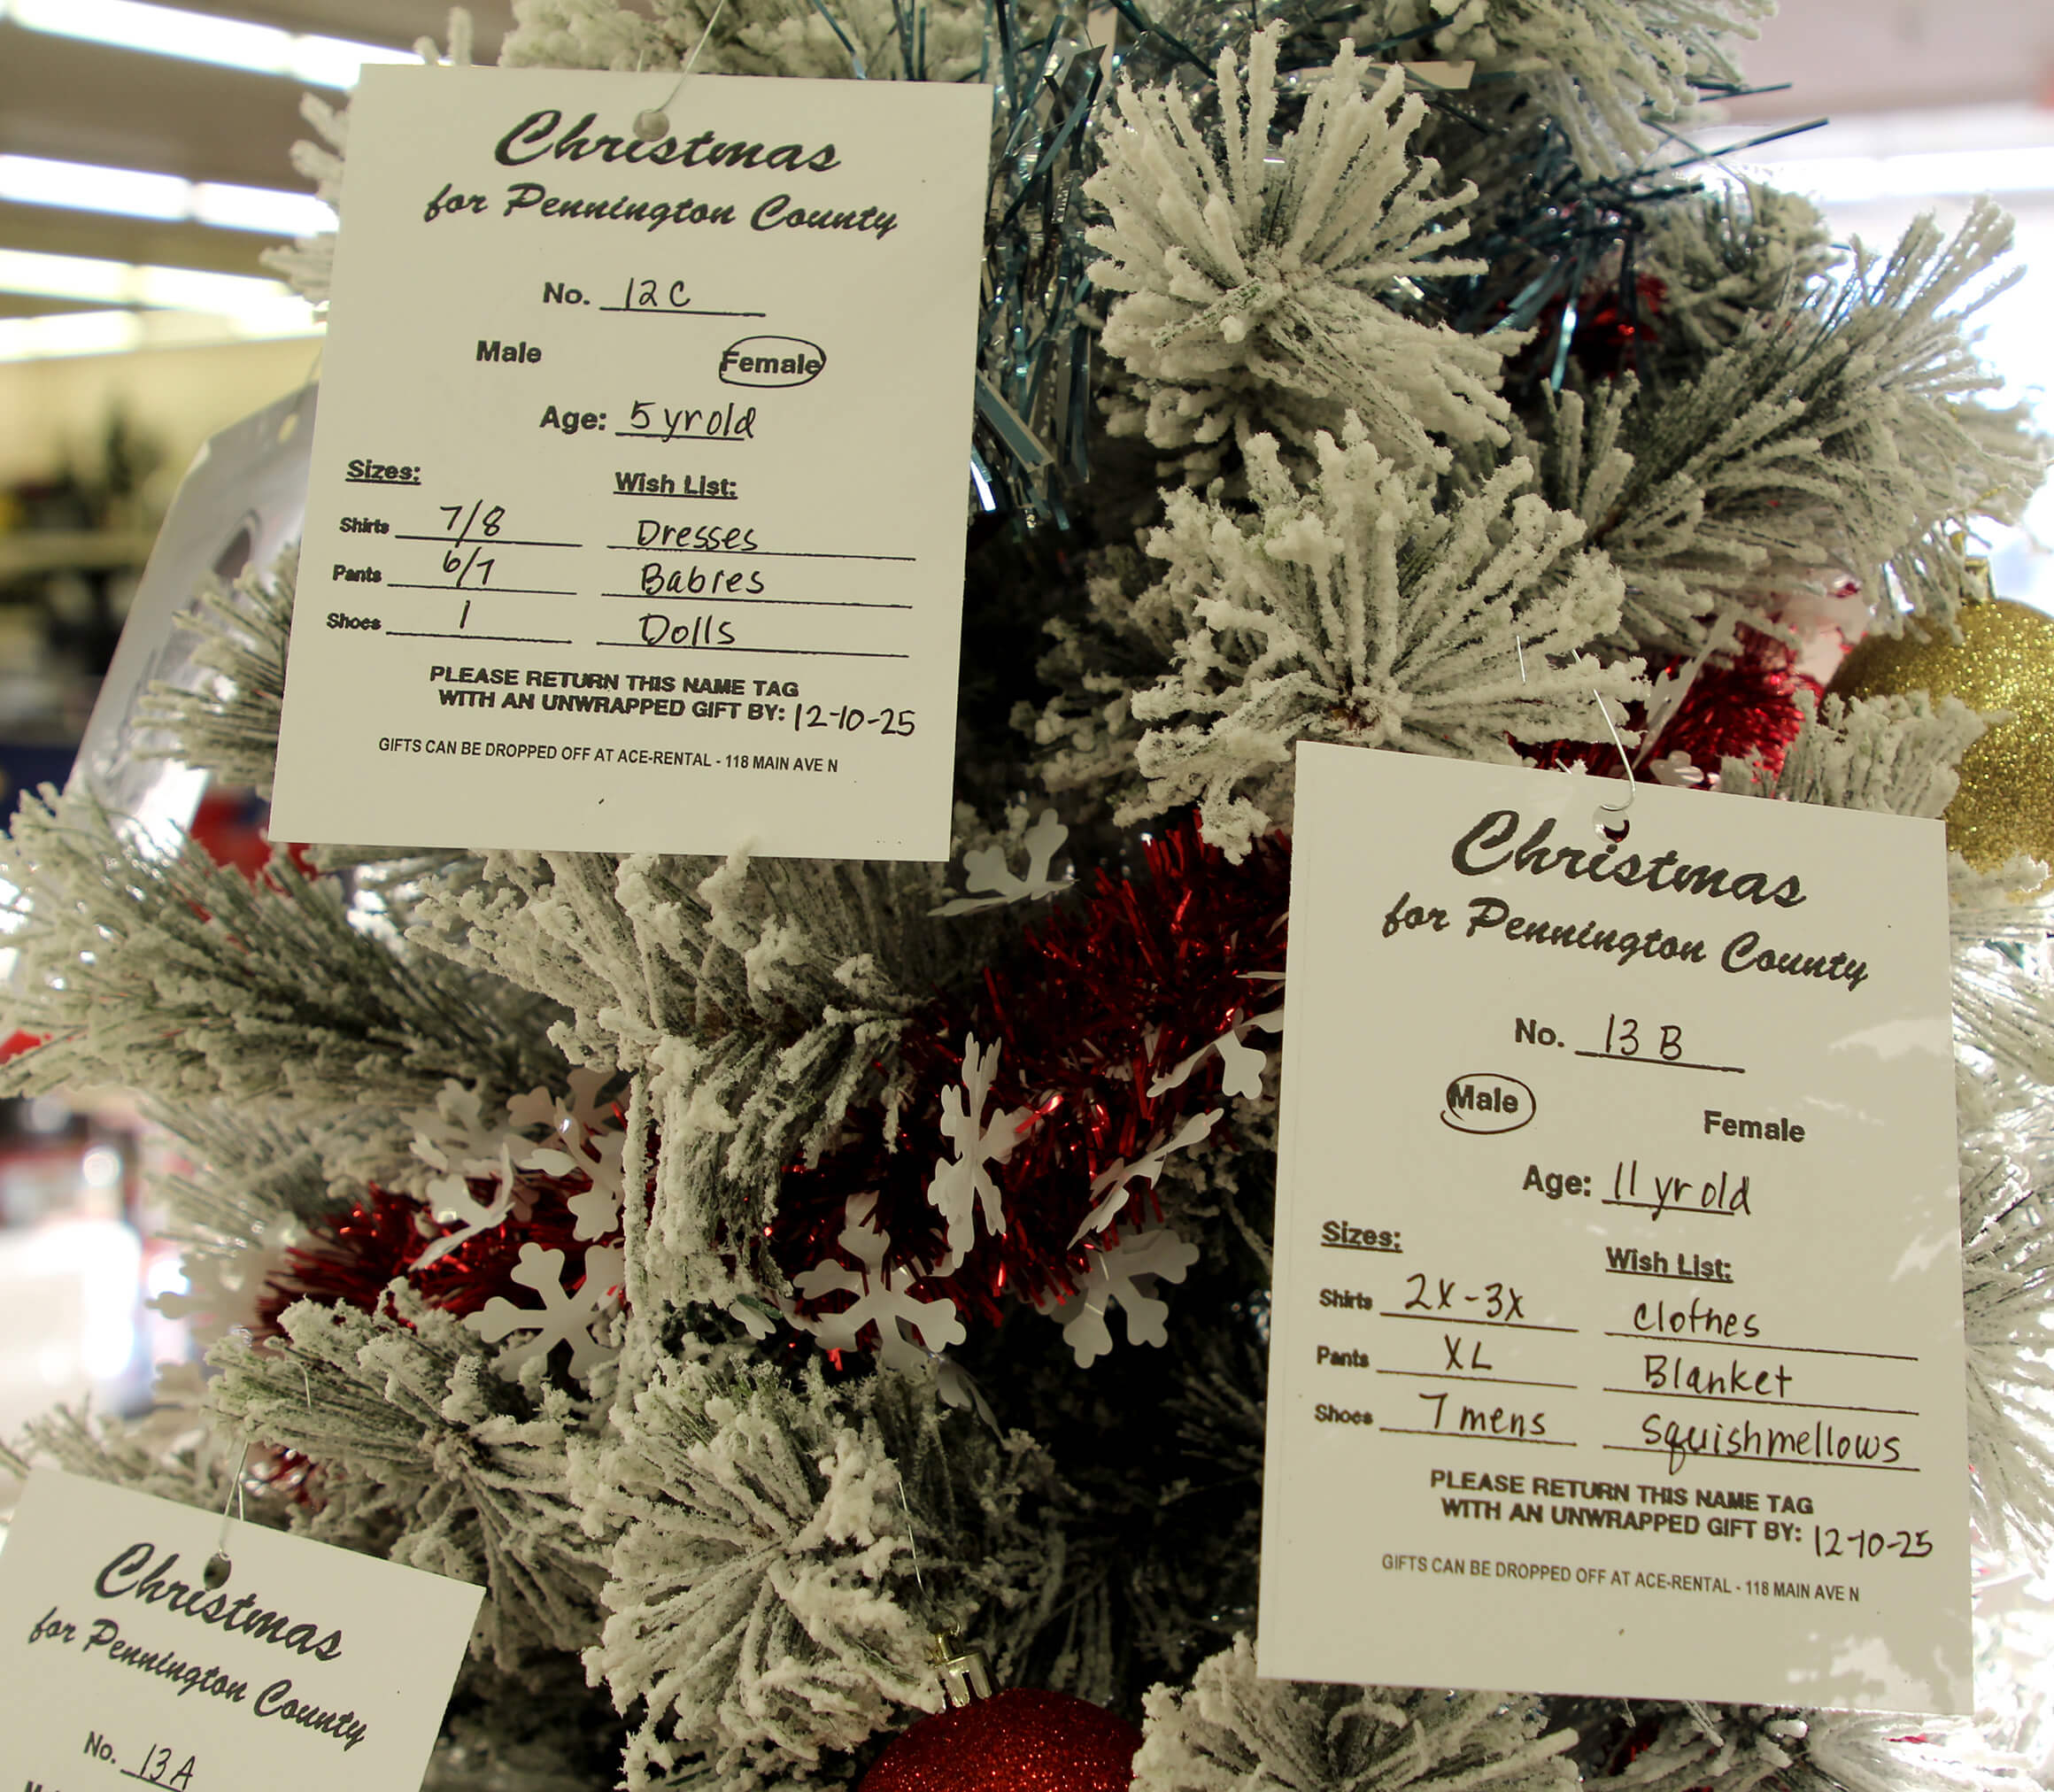 Christmas
for Pennington County
No. 12C
Male Female
Age: 5 yr old
Sizes: Wish List:
Shirts 7/8 Dresses
Pants 6/7 Babies
Shoes 1 Dolls
PLEASE RETURN THIS NAME TAG
WITH AN UNWRAPPED GIFT BY: 12-10-25
GIFTS CAN BE DROPPED OFF AT ACE-RENTAL - 118 MAIN AVE N
Christmas
for Pennington County
No. 13 B
Male Female
Age: 11 yr old
Sizes: Wish List:
Shirts 2X-3X Clothes
Pants XL Blanket
Shoes 7 mens Squishmellows
PLEASE RETURN THIS NAME TAG
WITH AN UNWRAPPED GIFT BY: 12-10-25
GIFTS CAN BE DROPPED OFF AT ACE-RENTAL - 118 MAIN AVE N
Christmas
for Pennington County
No. 13A